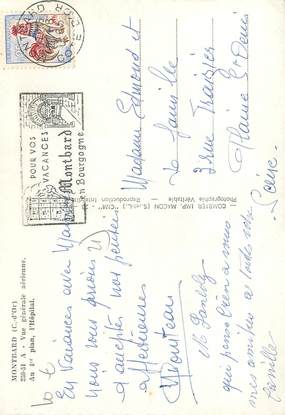 MONTBARD (C.-d'Or)
220-54 A - Vue générale aérienne.
Au 1er plan, l'Hôpital.
En Vacances avec
nous vous prions
d'accepter nos pensées
affectueuses
qui pense bien à vous
mes amitiés à toute votre
famille
COMBIER IMP. MACON (S.-et-L.) "CIM"
Photographie Véritable - Reproduction Interdite
POUR VOS
VACANCES
Montbard
en Bourgogne
MONTBARD
COTE D'OR
Madame Edmond et
La famille
3 rue
Plaine St Denis
Seine